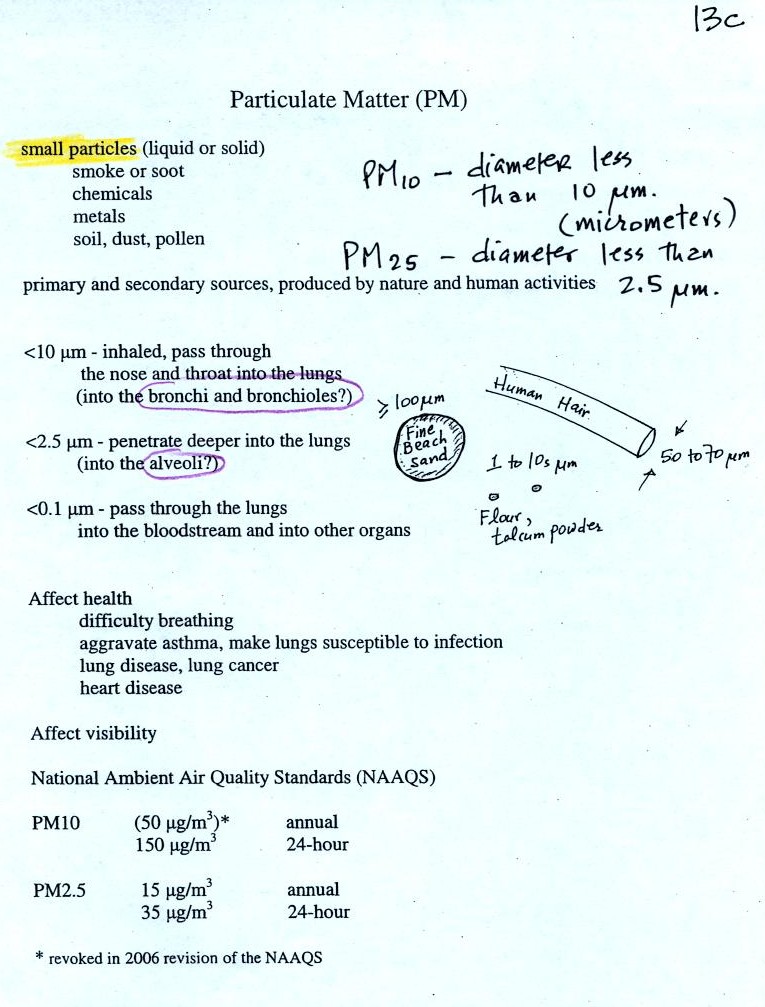 13c
Particulate Matter (PM)
small particles (liquid or solid)
smoke or soot
chemicals
metals
soil, dust, pollen
PM10 – diameter less
than 10 µm.
(micrometers)
PM25 - diameter less than
2.5 µm.
primary and secondary sources, produced by nature and human activities
<10 µm - inhaled, pass through
the nose and throat into the lungs
(into the bronchi and bronchioles?)
<2.5 µm - penetrate deeper into the lungs
(into the alveoli?)
<0.1 µm - pass through the lungs
into the bloodstream and into other organs
≥ 100 µm
Fine
Beach
Sand
Human Hair
50 to 70 µm
1 to 10s µm
Flour,
talcum powder
Affect health
difficulty breathing
aggravate asthma, make lungs susceptible to infection
lung disease, lung cancer
heart disease
Affect visibility
National Ambient Air Quality Standards (NAAQS)
PM10 (50 µg/m³)* annual
150 µg/m³ 24-hour
PM2.5 15 µg/m³ annual
35 µg/m³ 24-hour
* revoked in 2006 revision of the NAAQS